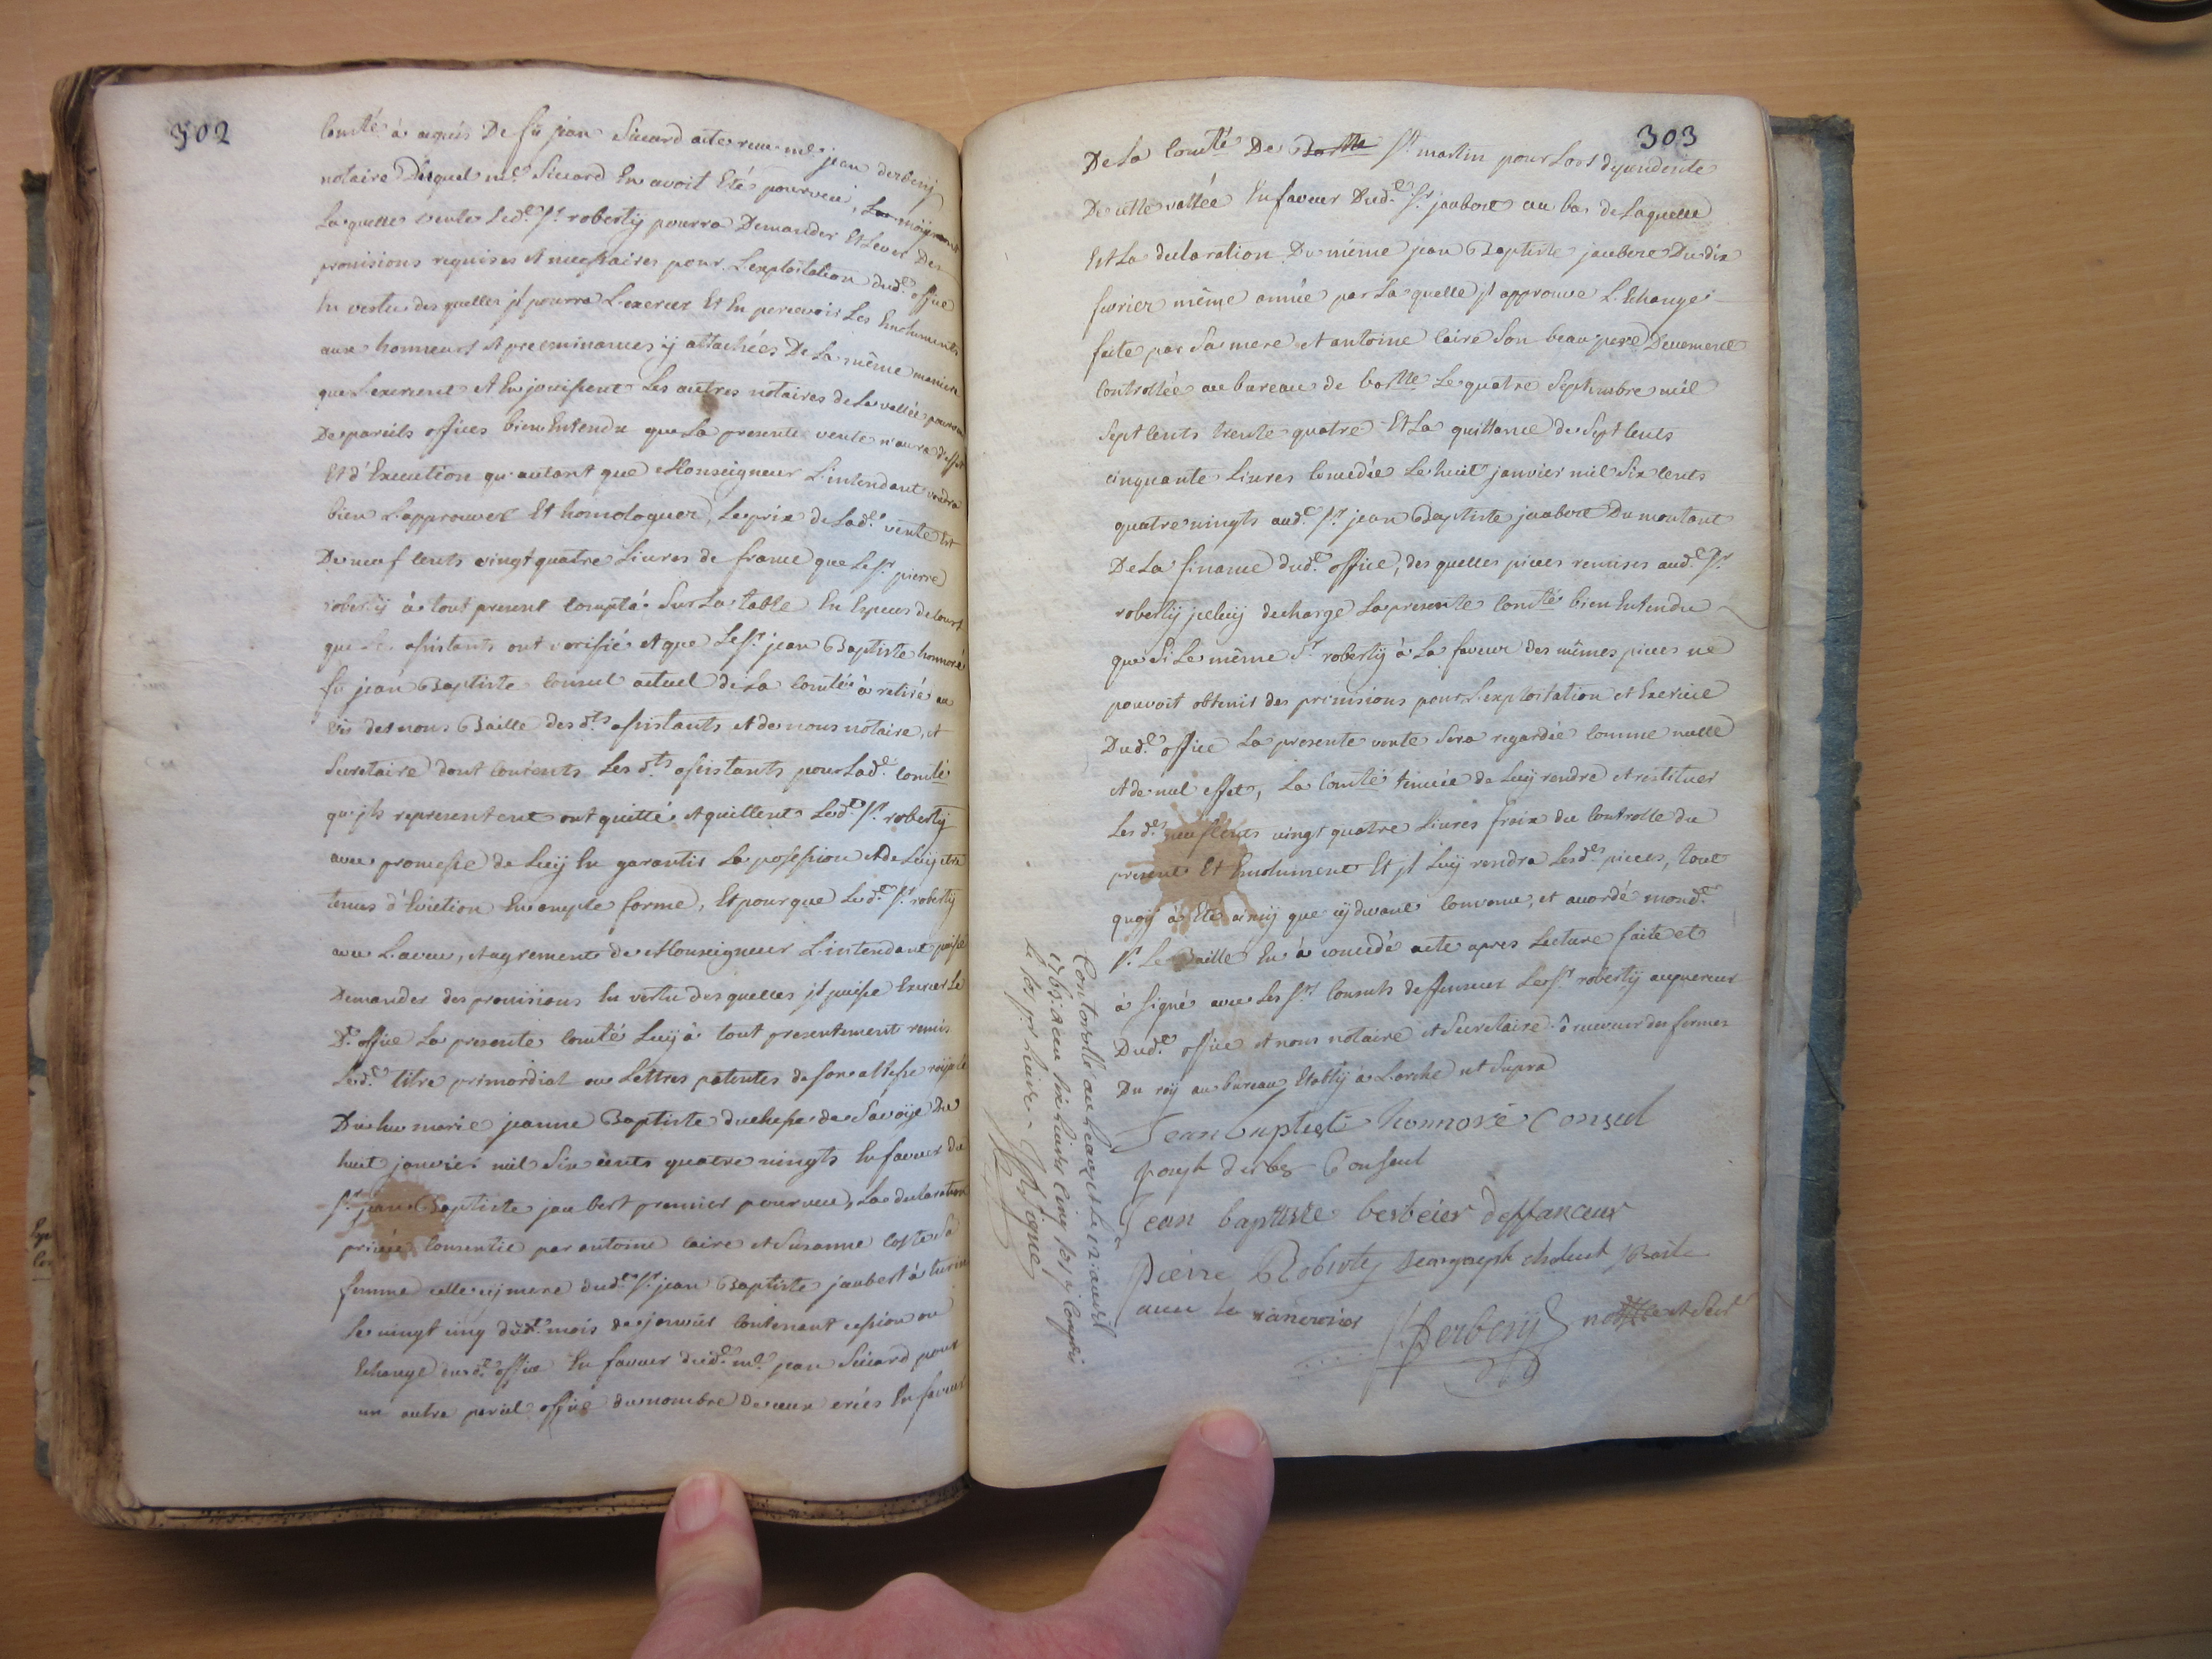 302
comté à aquis De fû jean Sicard acte recu m.e jean derbesij
notaire Duquel m.e Sicard En avoit Eté pourveu, moijenant
La quelle vente Led.t S.r robertij pourra Demander Et Lever Des
provisions requises et necessaires pour L'exploitation dud.e office
En vertu des quelles jl pourra L'exercer Et En percevoir Les Emoluments
aux honneurs et preeminances ij attachées De La même maniere
que L'exercent et En jouissent Les autres notaires de La vallée pourveus
De pareils offices bien Entendu que La presente vente n'aura d'effet
Et d'Execution qu'autant que Monseigneur L'intendant voudra
bien L'approuver Et homologuer, Le prix de Lad.e vente Est
De neuf cents vingt quatre Livres de france que Le S.r pierre
robertij à tout present compté Sur La table En Especes de cours
que Les assistants ont verifié et que Le S.r jean Baptiste honnoré
fû jean Baptiste Consul actuel de La comté à retiré au
vis de nous Baille des d.ts assistants et de nous notaire, et
Secretaire dont contents Les d.ts assistants pour Lad.e comté
qu'jls representent ont quitté et quittent Led.t S.r robertij
avec promesse de Luij En garantir La possession et de Luij etre
tenus d'Eviction En ample forme, Et pour que Led.t S.r robertij
avec L'aveu, et agrement de Monseigneur L'intendant puisse
Demander des provisions En vertu des quelles jl puisse Exercer Le
D.t office La presente comté Luij à tout presentement remis
Led.t titre primordial ou Lettres patentes de son altesse roijale
Dûe marie jeanne Baptiste duchesse de Savoije Du
huit janvier mil Six cents quatre vingts En faveur du
S.r jean Baptiste jaubert premier pourveu, La declaration
privée consentie par antoine caire et Susanne coste Sa
femme celle cij mere dud.t S.r jean Baptiste jaubert à turin
Le vingt cinq dud.t mois de janvier contenant cession ou
Echange dud.t office En faveur dud.t m.e jean Sicard pour
un autre pareil office du nombre De ceux créés En faveur
303
De La comté De S.t martin pour Lors dependente
De cette vallée En faveur Dud.t S.r jaubert au bas de Laquelle
Est La declaration Du même jean Baptiste jaubert Du dix
fevrier même année par La quelle jl approuve L'Echange
faite par Sa mere et antoine caire Son beau pere Deuement
Controllée au bureau de bar.tte Le quatre Septembre mil
Sept cents trente quatre Et La quittance de Sept cents
cinquante Livres concedée Le huit janvier mil Six cents
quatre vingts aud.t S.r jean Baptiste jaubert Du montant
De La finance dud.t office, des quelles pieces remises aud.t S.r
robertij jceluij decharge La presente comté bien Entendu
que Si Le même S.r robertij à La faveur des mêmes pieces ne
pouvoit obtenir des provisions pour L'exploitation et Exercice
Dud.t office La presente vente Sera regardée comme nulle
et de nul effet, La comté tenuée de Luij rendre et restituer
Les d.es neuf cents vingt quatre Livres frais du Controlle du
present Et Emolument Et jl Luij rendra Les d.es pieces, tout
quoij à Eté ainsij que cij devant convenu, et accordé mond.t
S.r Le Baille En à concedé acte apres Lecture faite et
à Signé avec Les S.rs Consuls deffenseur Le S.r robertij acquereur
Dud.t office et nous notaire et Secretaire à recevoir des fermes
Du roij au bureau Etablij à Larche ut Supra
Jean baptiste honnoré Consul
joseph derbes Conseul
Jean baptiste berbeier deffanceur
Pierre Robertij Jean joseph chabert Baile
Derbesij not.re et Secr.e